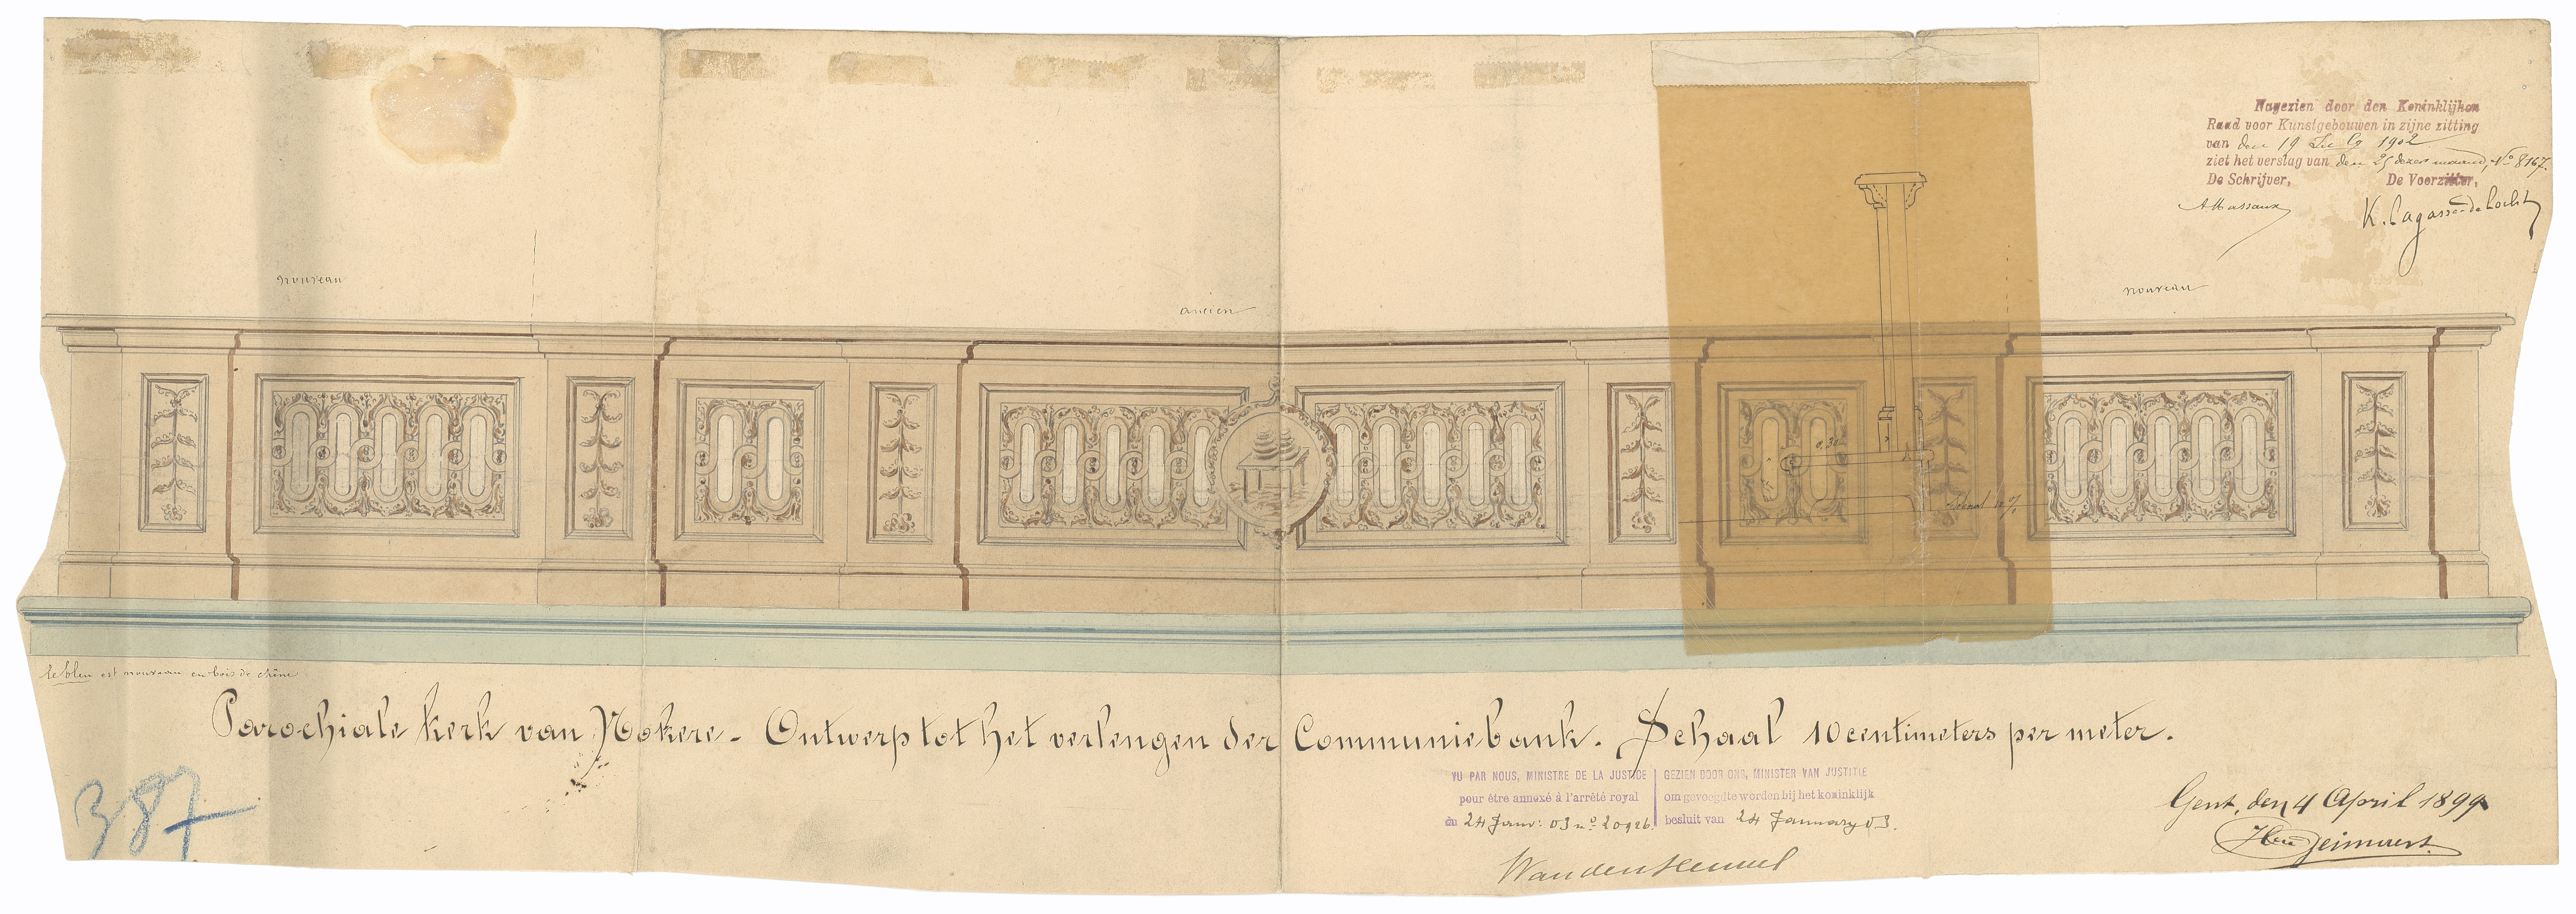 Nagezien door den Koninklijken
Raad voor Kunstgebouwen in zijne zitting
van den 19 1902
ziet het verslag van den 25 dezer maand, No 8167.
De Schrijver, De Voorzitter,
A Massaux
K. Lagasse de Locht
nouveau
ancien
nouveau
0,30
Schaal 10 %
le bleu est nouveau en bois de chêne
Parochiale kerk van Nokere - Ontwerp tot het verlengen der Communiebank. Schaal 10 centimeters per meter.
387
VU PAR NOUS, MINISTRE DE LA JUSTICE
pour être annexé à l'arrêté royal
du 24 Janv: 03 no 20926.
GEZIEN DOOR ONS, MINISTER VAN JUSTITIE
om gevoegd te worden bij het koninklijk
besluit van 24 January 03.
Vandenheuvel
Gent, den 4 April 1899